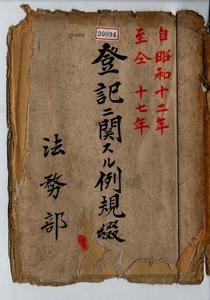 自昭和十二年
至仝十七年
20094
登記ニ関スル例規綴
法務部